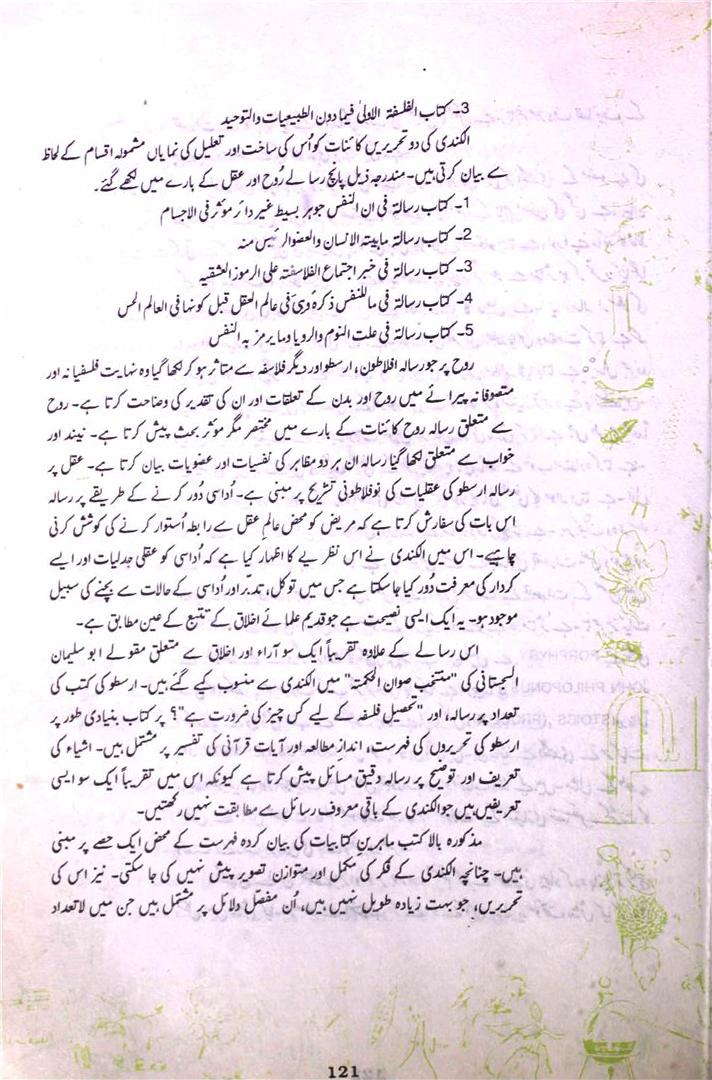 3۔ کتاب الفلسفۃ الاولیٰ فیما دون الطبیعیات والتوحید
الکندی کی دو تحریریں کائنات کو اُس کی ساخت اور تعلیل کی نمایاں مشمولہ اقسام کے لحاظ
سے بیان کرتی ہیں۔ مندرجہ ذیل پانچ رسالے رُوح اور عقل کے بارے میں لکھے گئے۔
1۔ کتاب رسالۃ فی ان النفس جوہر بسیط غیر دائر مؤثر فی الاجسام
2۔ کتاب رسالۃ ماہیتہ الانسان والعضو الرئیس منہ
3۔ کتاب رسالۃ فی خبر اجتماع الفلاسفتہ علی الرموز العشقیہ
4۔ کتاب رسالۃ فی ماللنفس ذکرہ وہی فی عالم العقل قبل کونہا فی العالم الحس
5۔ کتاب رسالۃ فی علت النوم والرویا وما یرمز بہ النفس
روح پر جو رسالہ افلاطون، ارسطو اور دیگر فلاسفہ سے متاثر ہو کر لکھا گیا وہ نہایت فلسفیانہ اور
متصوفانہ پیرائے میں روح اور بدن کے تعلقات اور ان کی تقدیر کی وضاحت کرتا ہے۔ روح
سے متعلق رسالہ روح کائنات کے بارے میں مختصر مگر مؤثر بحث پیش کرتا ہے۔ نیند اور
خواب سے متعلق لکھا گیا رسالہ ان ہر دو مظاہر کی نفسیات اور عضویات بیان کرتا ہے۔ عقل پر
رسالہ ارسطو کی عقلیات کی نوفلاطونی تشریح پر مبنی ہے۔ اُداسی دُور کرنے کے طریقے پر رسالہ
اس بات کی سفارش کرتا ہے کہ مریض کو محض عالمِ عقل سے رابطہ اُستوار کرنے کی کوشش کرنی
چاہیے۔ اس میں الکندی نے اس نظریے کا اظہار کیا ہے کہ اُداسی کو عقلی جدلیات اور ایسے
کردار کی معرفت دُور کیا جا سکتا ہے جس میں توکل، تدبّر اور اُداسی کے حالات سے بچنے کی سبیل
موجود ہو۔ یہ ایک ایسی نصیحت ہے جو قدیم علمائے اخلاق کے تتبع کے عین مطابق ہے۔
اس رسالے کے علاوہ تقریباً ایک سو آراء اور اخلاق سے متعلق مقولے ابو سلیمان
السجستانی کی "منتخب صوان الحکمتہ" میں الکندی سے منسوب کیے گئے ہیں۔ ارسطو کی کتب کی
تعداد پر رسالہ، اور "تحصیل فلسفہ کے لیے کس چیز کی ضرورت ہے"؟ پر کتاب بنیادی طور پر
ارسطو کی تحریروں کی فہرست، اندازِ مطالعہ اور آیات قرآنی کی تفسیر پر مشتمل ہیں۔ اشیاء کی
تعریف اور توضیح پر رسالہ دقیق مسائل پیش کرتا ہے کیونکہ اس میں تقریباً ایک سو ایسی
تعریفیں ہیں جو الکندی کے باقی معروف رسائل سے مطابقت نہیں رکھتیں۔
مذکورہ بالا کتب ماہرینِ کتابیات کی بیان کردہ فہرست کے محض ایک حصے پر مبنی
ہیں۔ چنانچہ الکندی کے فکر کی مکمل اور متوازن تصویر پیش نہیں کی جا سکتی۔ نیز اس کی
تحریریں، جو بہت زیادہ طویل نہیں ہیں، اُن مفصّل دلائل پر مشتمل ہیں جن میں لاتعداد
121